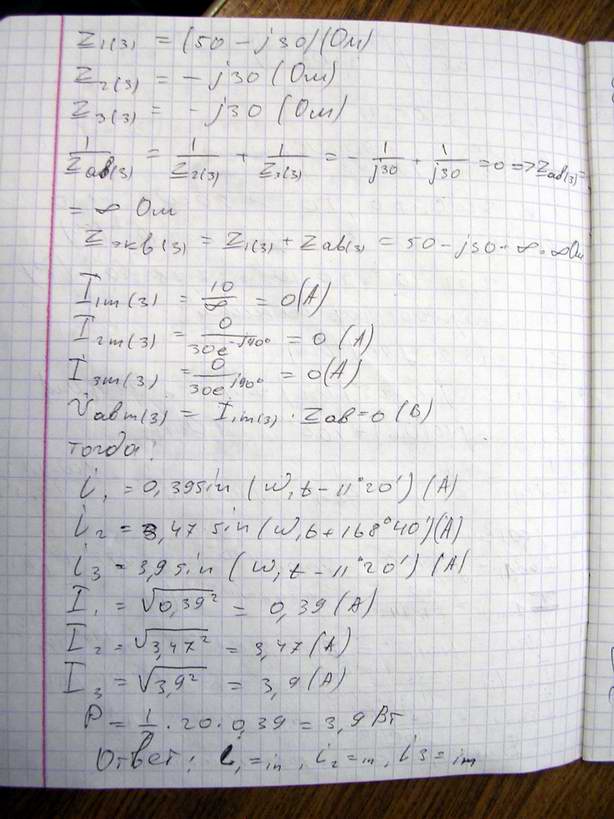 Z₁₍₃₎ = (50 - j30)(Ом)
Z₂₍₃₎ = - j30 (Ом)
Z₃₍₃₎ = - j30 (Ом)
1/Zав(3) = 1/Z₂₍₃₎ + 1/Z₃₍₃₎ = - 1/j30 + 1/j30 = 0 => Zав(3) =
= ∞ Ом
Zэкв(3) = Z₁₍₃₎ + Zав(3) = 50 - j30 + ∞ = ∞ Ом
I₁m(3) = 10/∞ = 0(A)
I₂m(3) = 0/30e^-j90° = 0 (A)
I₃m(3) = 0/30e^j90° = 0(A)
Uавm(3) = I₁m(3) · Zав = 0 (В)
тогда:
i₁ = 0,39sin (ω₁t - 11°20') (A)
i₂ = 3,47 sin(ω₁t + 168°40')(A)
i₃ = 3,9 sin (ω₁t - 11°20') (A)
I₁ = √0,39² = 0,39 (A)
I₂ = √3,47² = 3,47 (A)
I₃ = √3,9² = 3,9 (A)
P = 1/2 · 20 · 0,39 = 3,9 Вт
Ответ: i₁ = in, i₂ = in, i3 = im